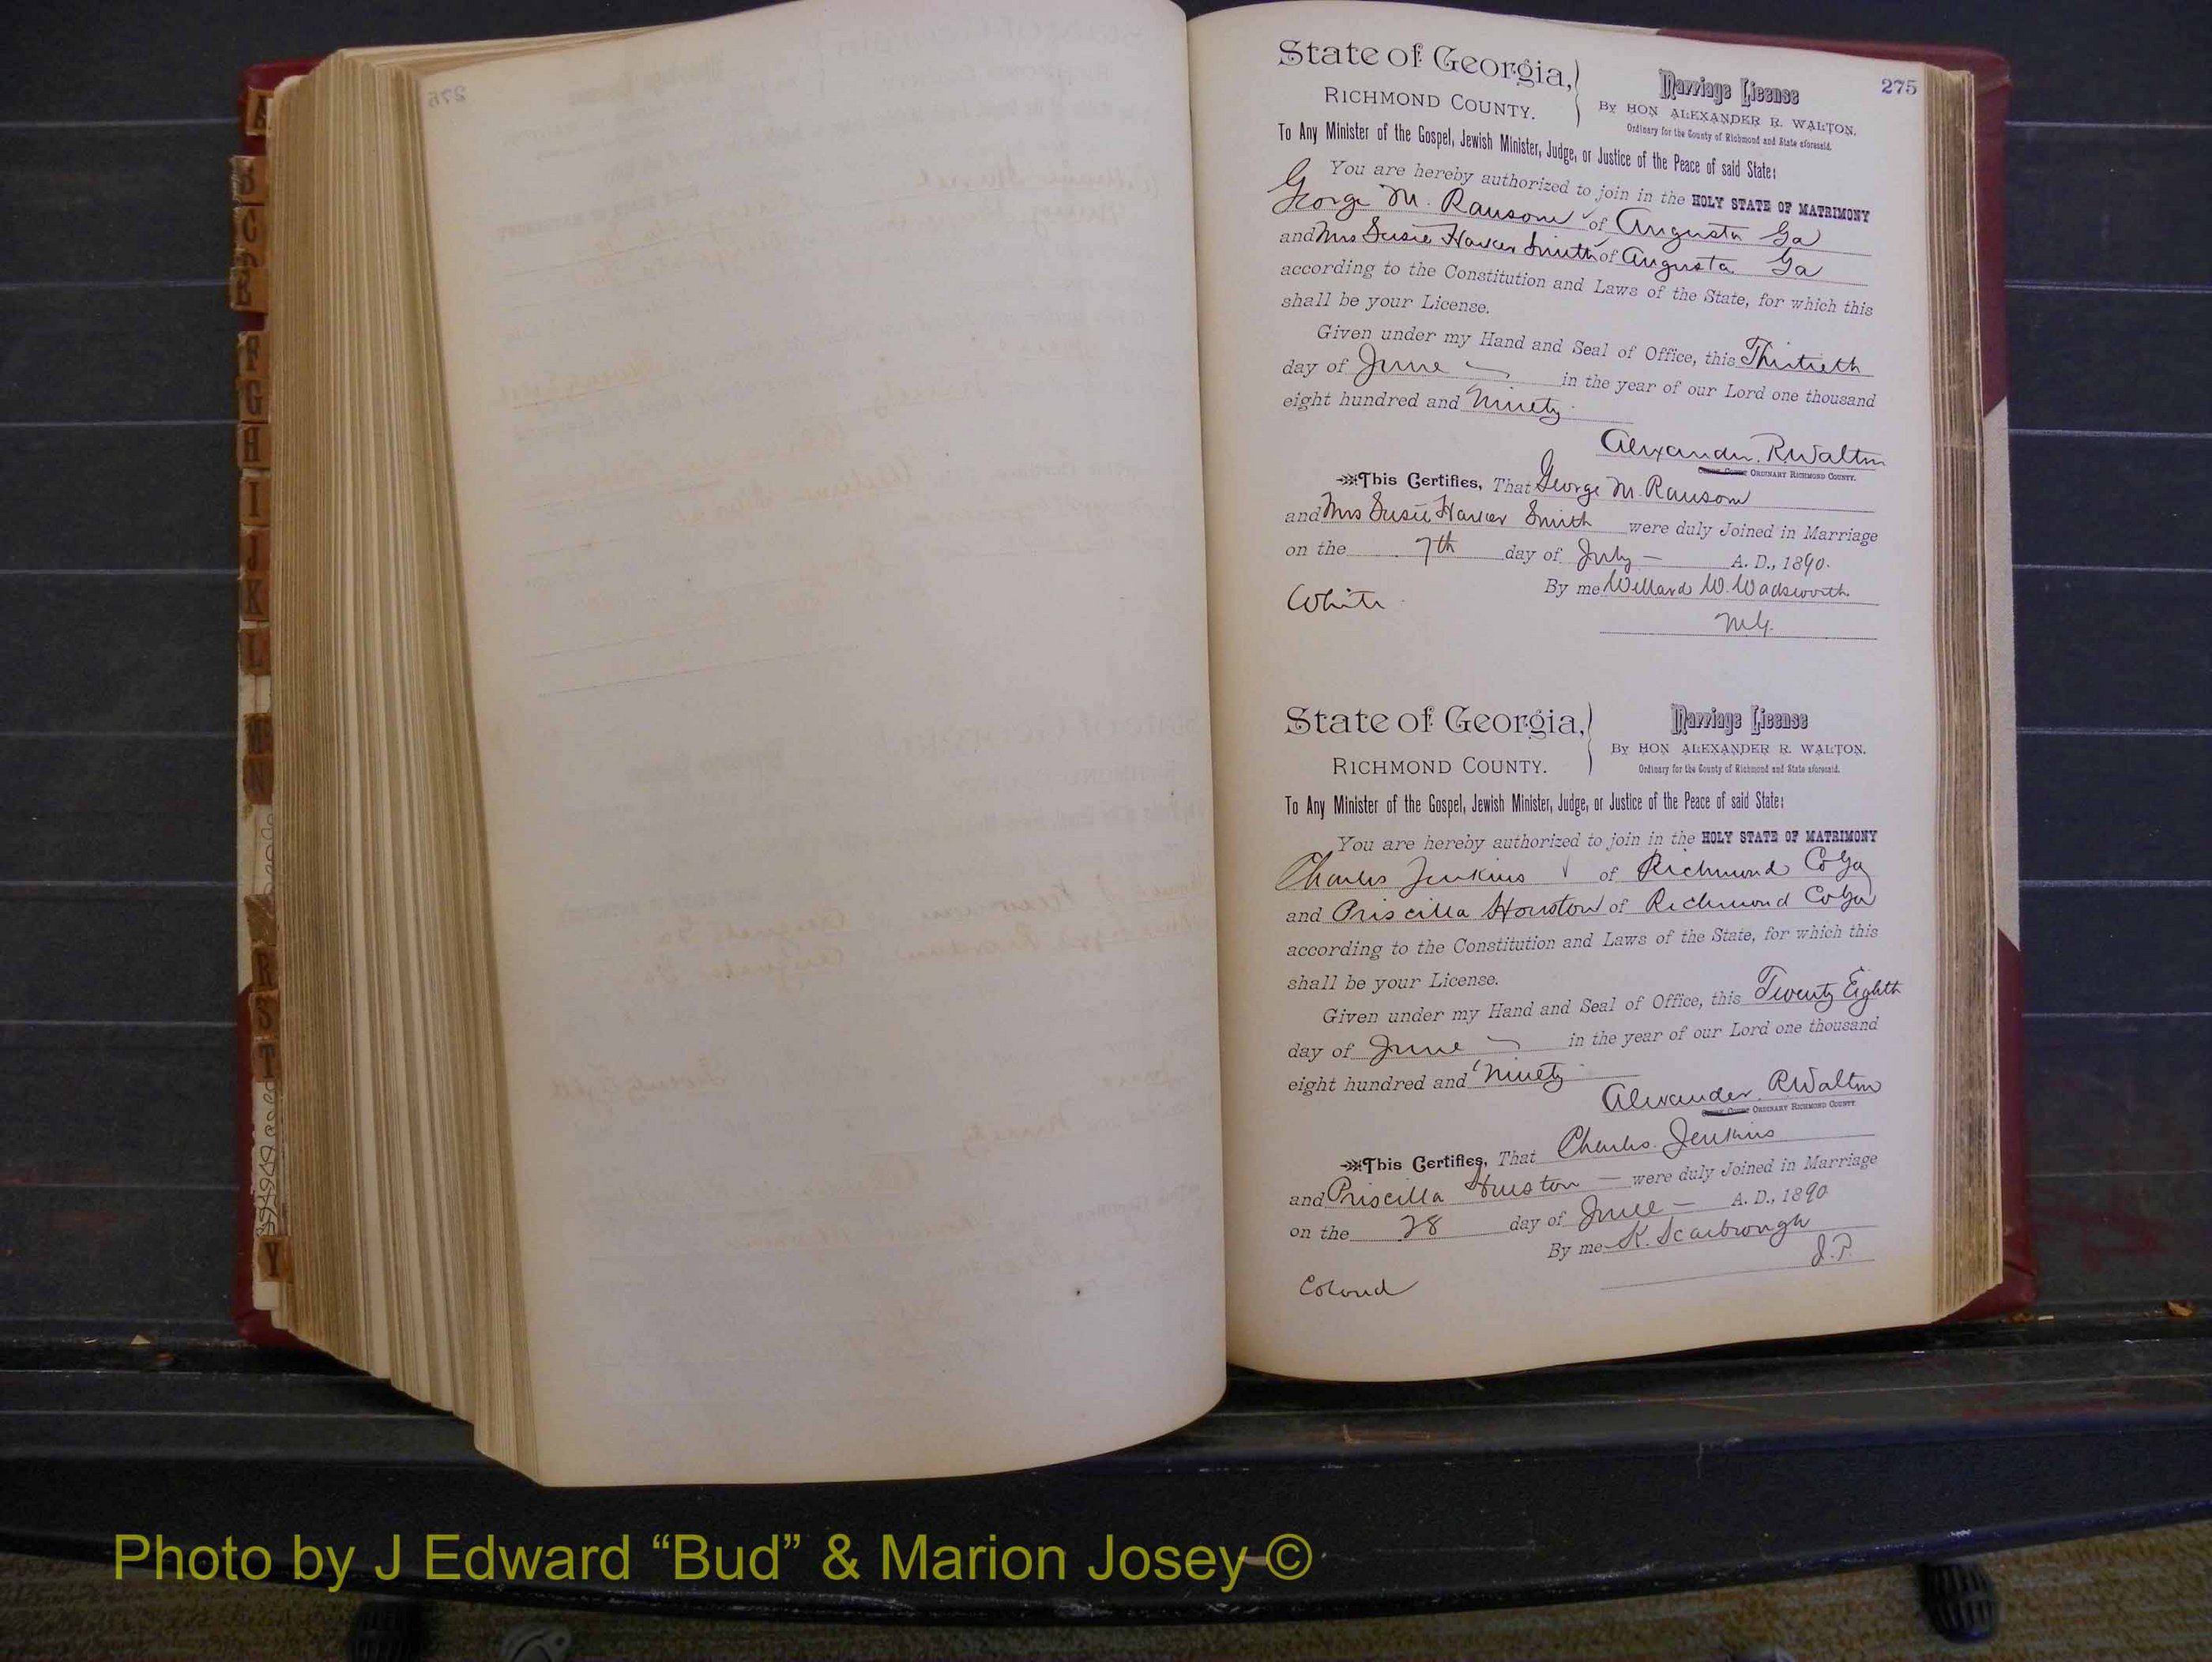 275
State of Georgia,
RICHMOND COUNTY.
Marriage License
By HON ALEXANDER R. WALTON,
Ordinary for the County of Richmond and State aforesaid.
To Any Minister of the Gospel, Jewish Minister, Judge, or Justice of the Peace of said State:
You are hereby authorized to join in the HOLY STATE OF MATRIMONY
George M. Ransom of Augusta Ga
and Mrs Susie Smith of Augusta Ga
according to the Constitution and Laws of the State, for which this
shall be your License.
Given under my Hand and Seal of Office, this Thirtieth
day of June in the year of our Lord one thousand
eight hundred and Ninety
Alexander R Walton
ORDINARY RICHMOND COUNTY.
This Certifies, That George M. Ransom
and Mrs Susie Smith were duly Joined in Marriage
on the 7th day of July A. D., 1890.
By me Willard W. Wadsworth
M.G.
White
State of Georgia,
RICHMOND COUNTY.
Marriage License
By HON ALEXANDER R. WALTON,
Ordinary for the County of Richmond and State aforesaid.
To Any Minister of the Gospel, Jewish Minister, Judge, or Justice of the Peace of said State:
You are hereby authorized to join in the HOLY STATE OF MATRIMONY
Charles Jenkins of Richmond Co Ga
and Priscilla Houston of Richmond Co Ga
according to the Constitution and Laws of the State, for which this
shall be your License.
Given under my Hand and Seal of Office, this Twenty Eighth
day of June in the year of our Lord one thousand
eight hundred and Ninety
Alexander R Walton
ORDINARY RICHMOND COUNTY
This Certifies, That Charles Jenkins
and Priscilla Huston were duly Joined in Marriage
on the 28 day of June A. D., 1890
By me K. Scarbrough
J.P.
Colored
A
B
C
D
E
F
G
H
I
J
K
L
M
N
R
S
T
Y
Photo by J Edward “Bud” & Marion Josey ©